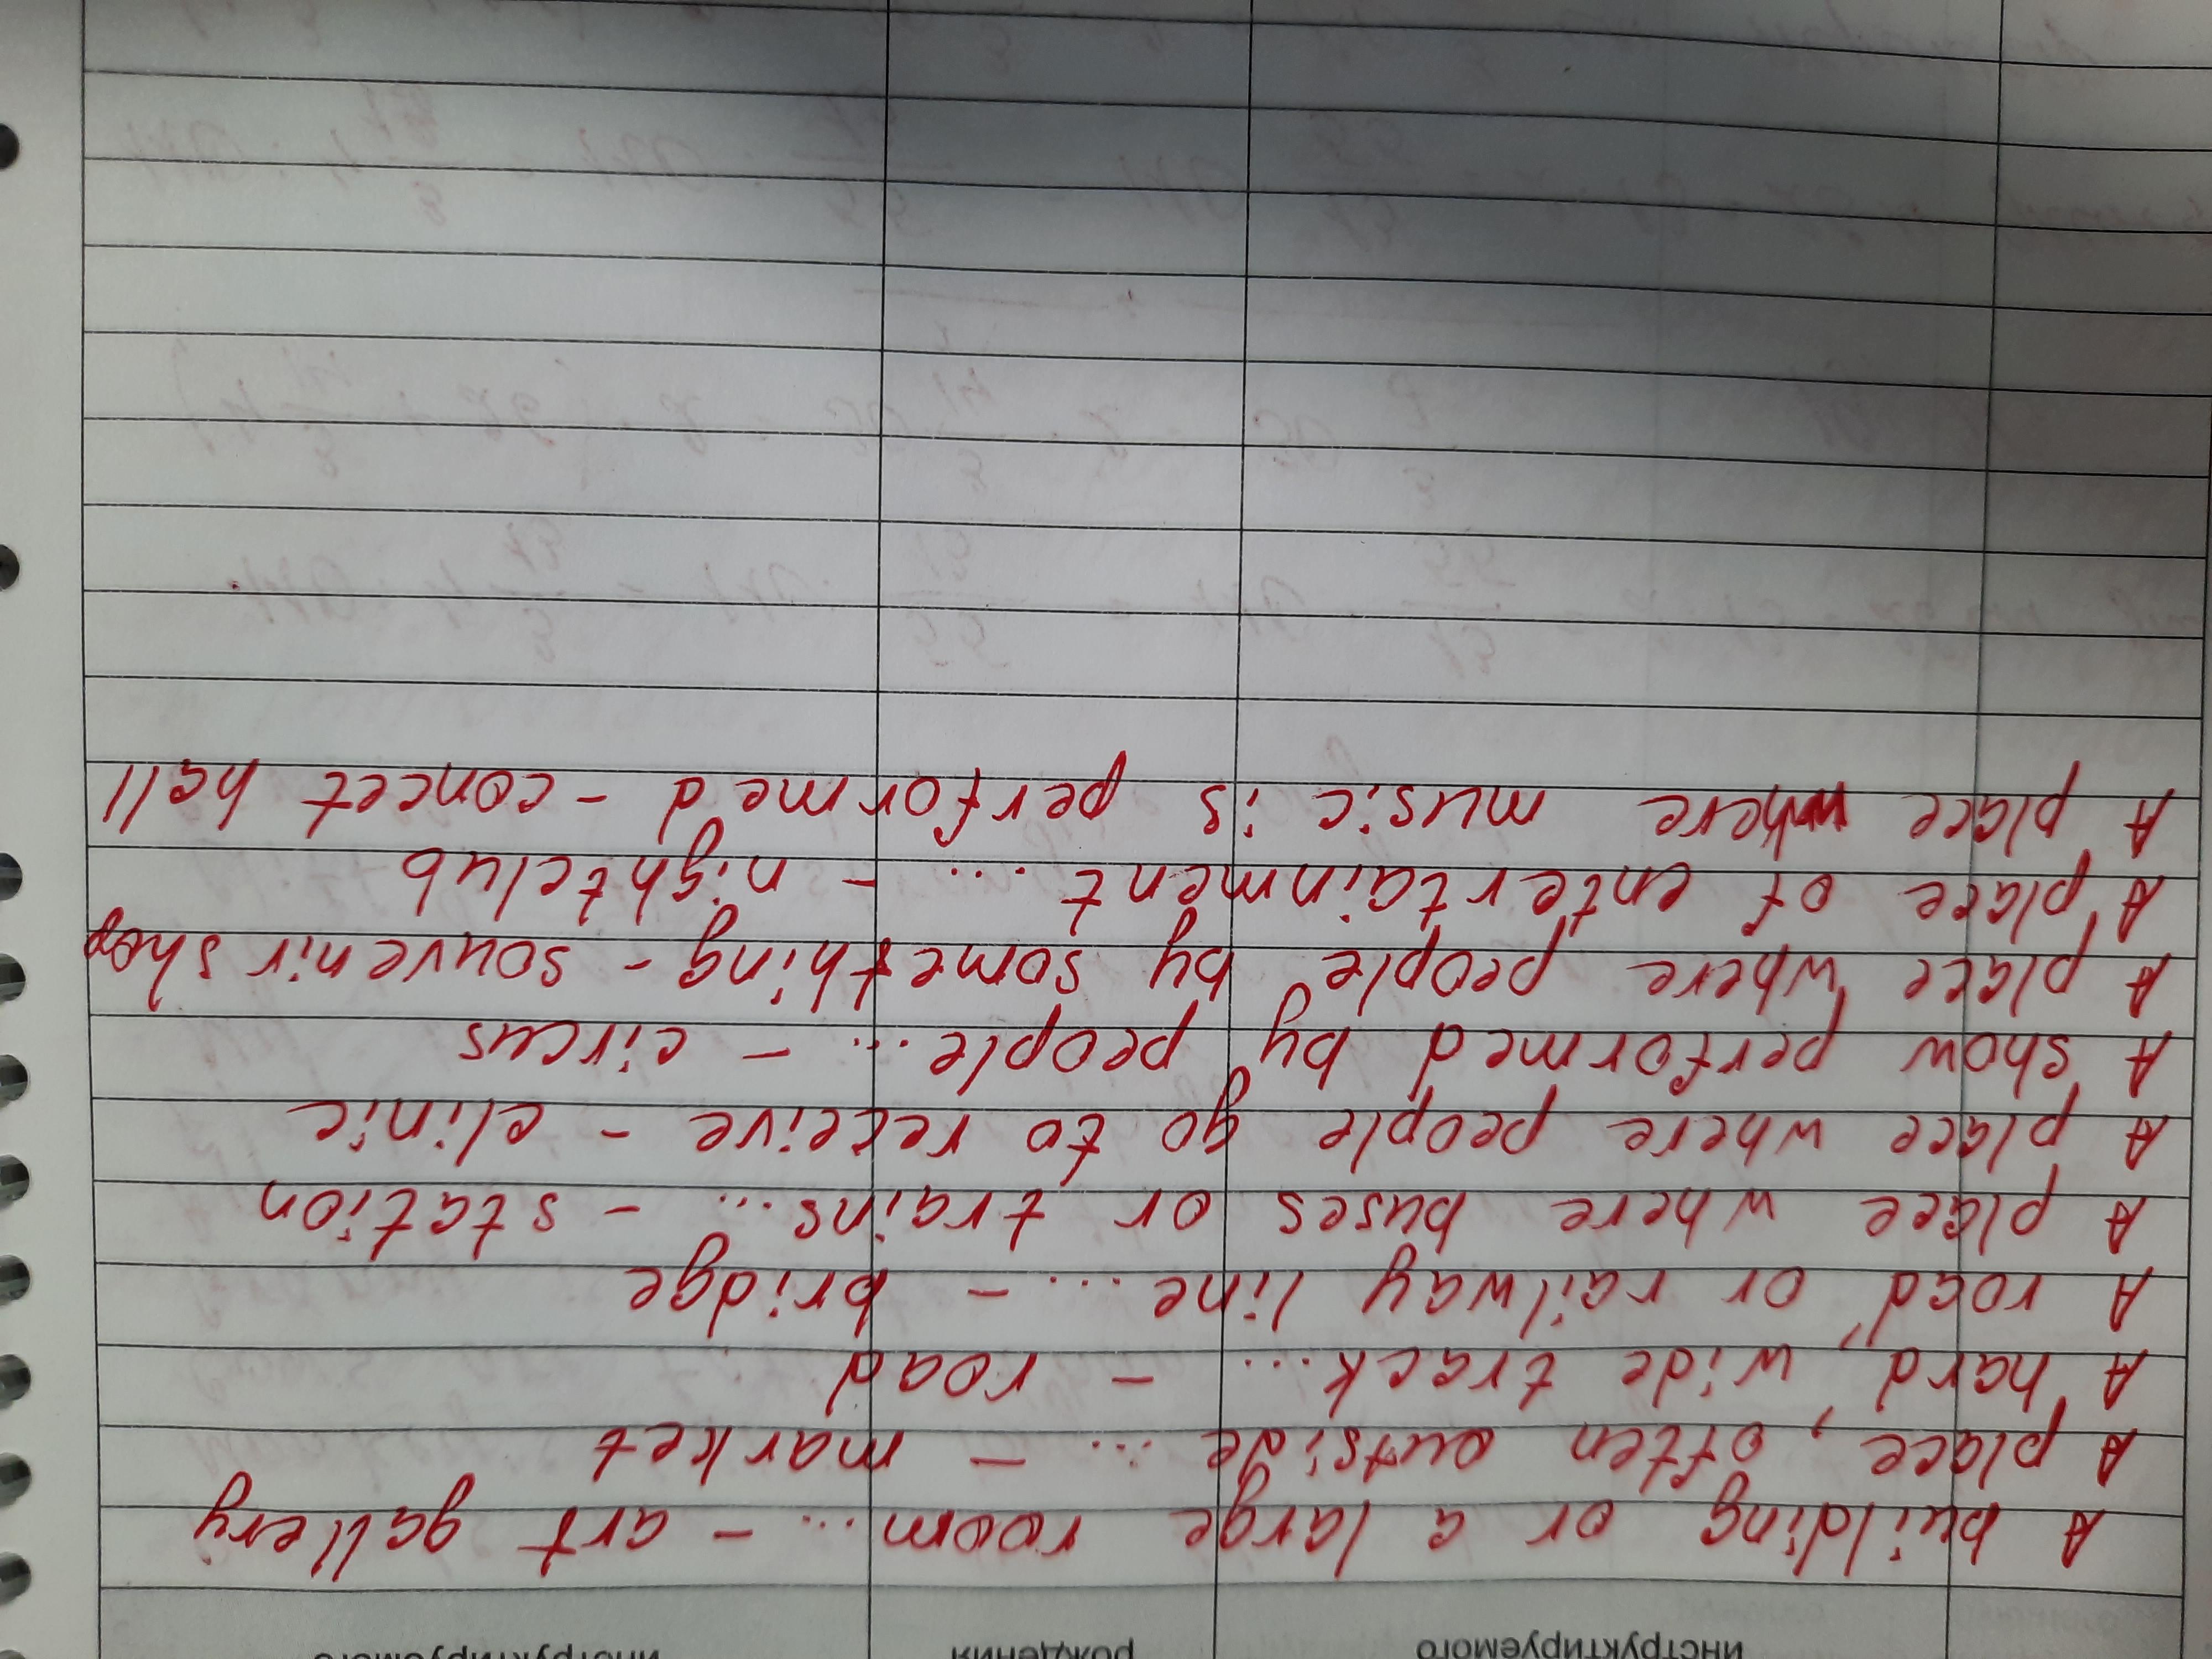 инструктируемого рождения инструктируемого
A building or a large room... - art gallery
A place, often outside ... - market
A hard, wide track... - road
A road, or railway line ... - bridge
A place where buses or trains... - station
A place where people go to receive - clinic
A show performed by people... - circus
A place where people by something - souvenir shop
A place of entertainment ... - nightclub
A place where music is performed - concet hall